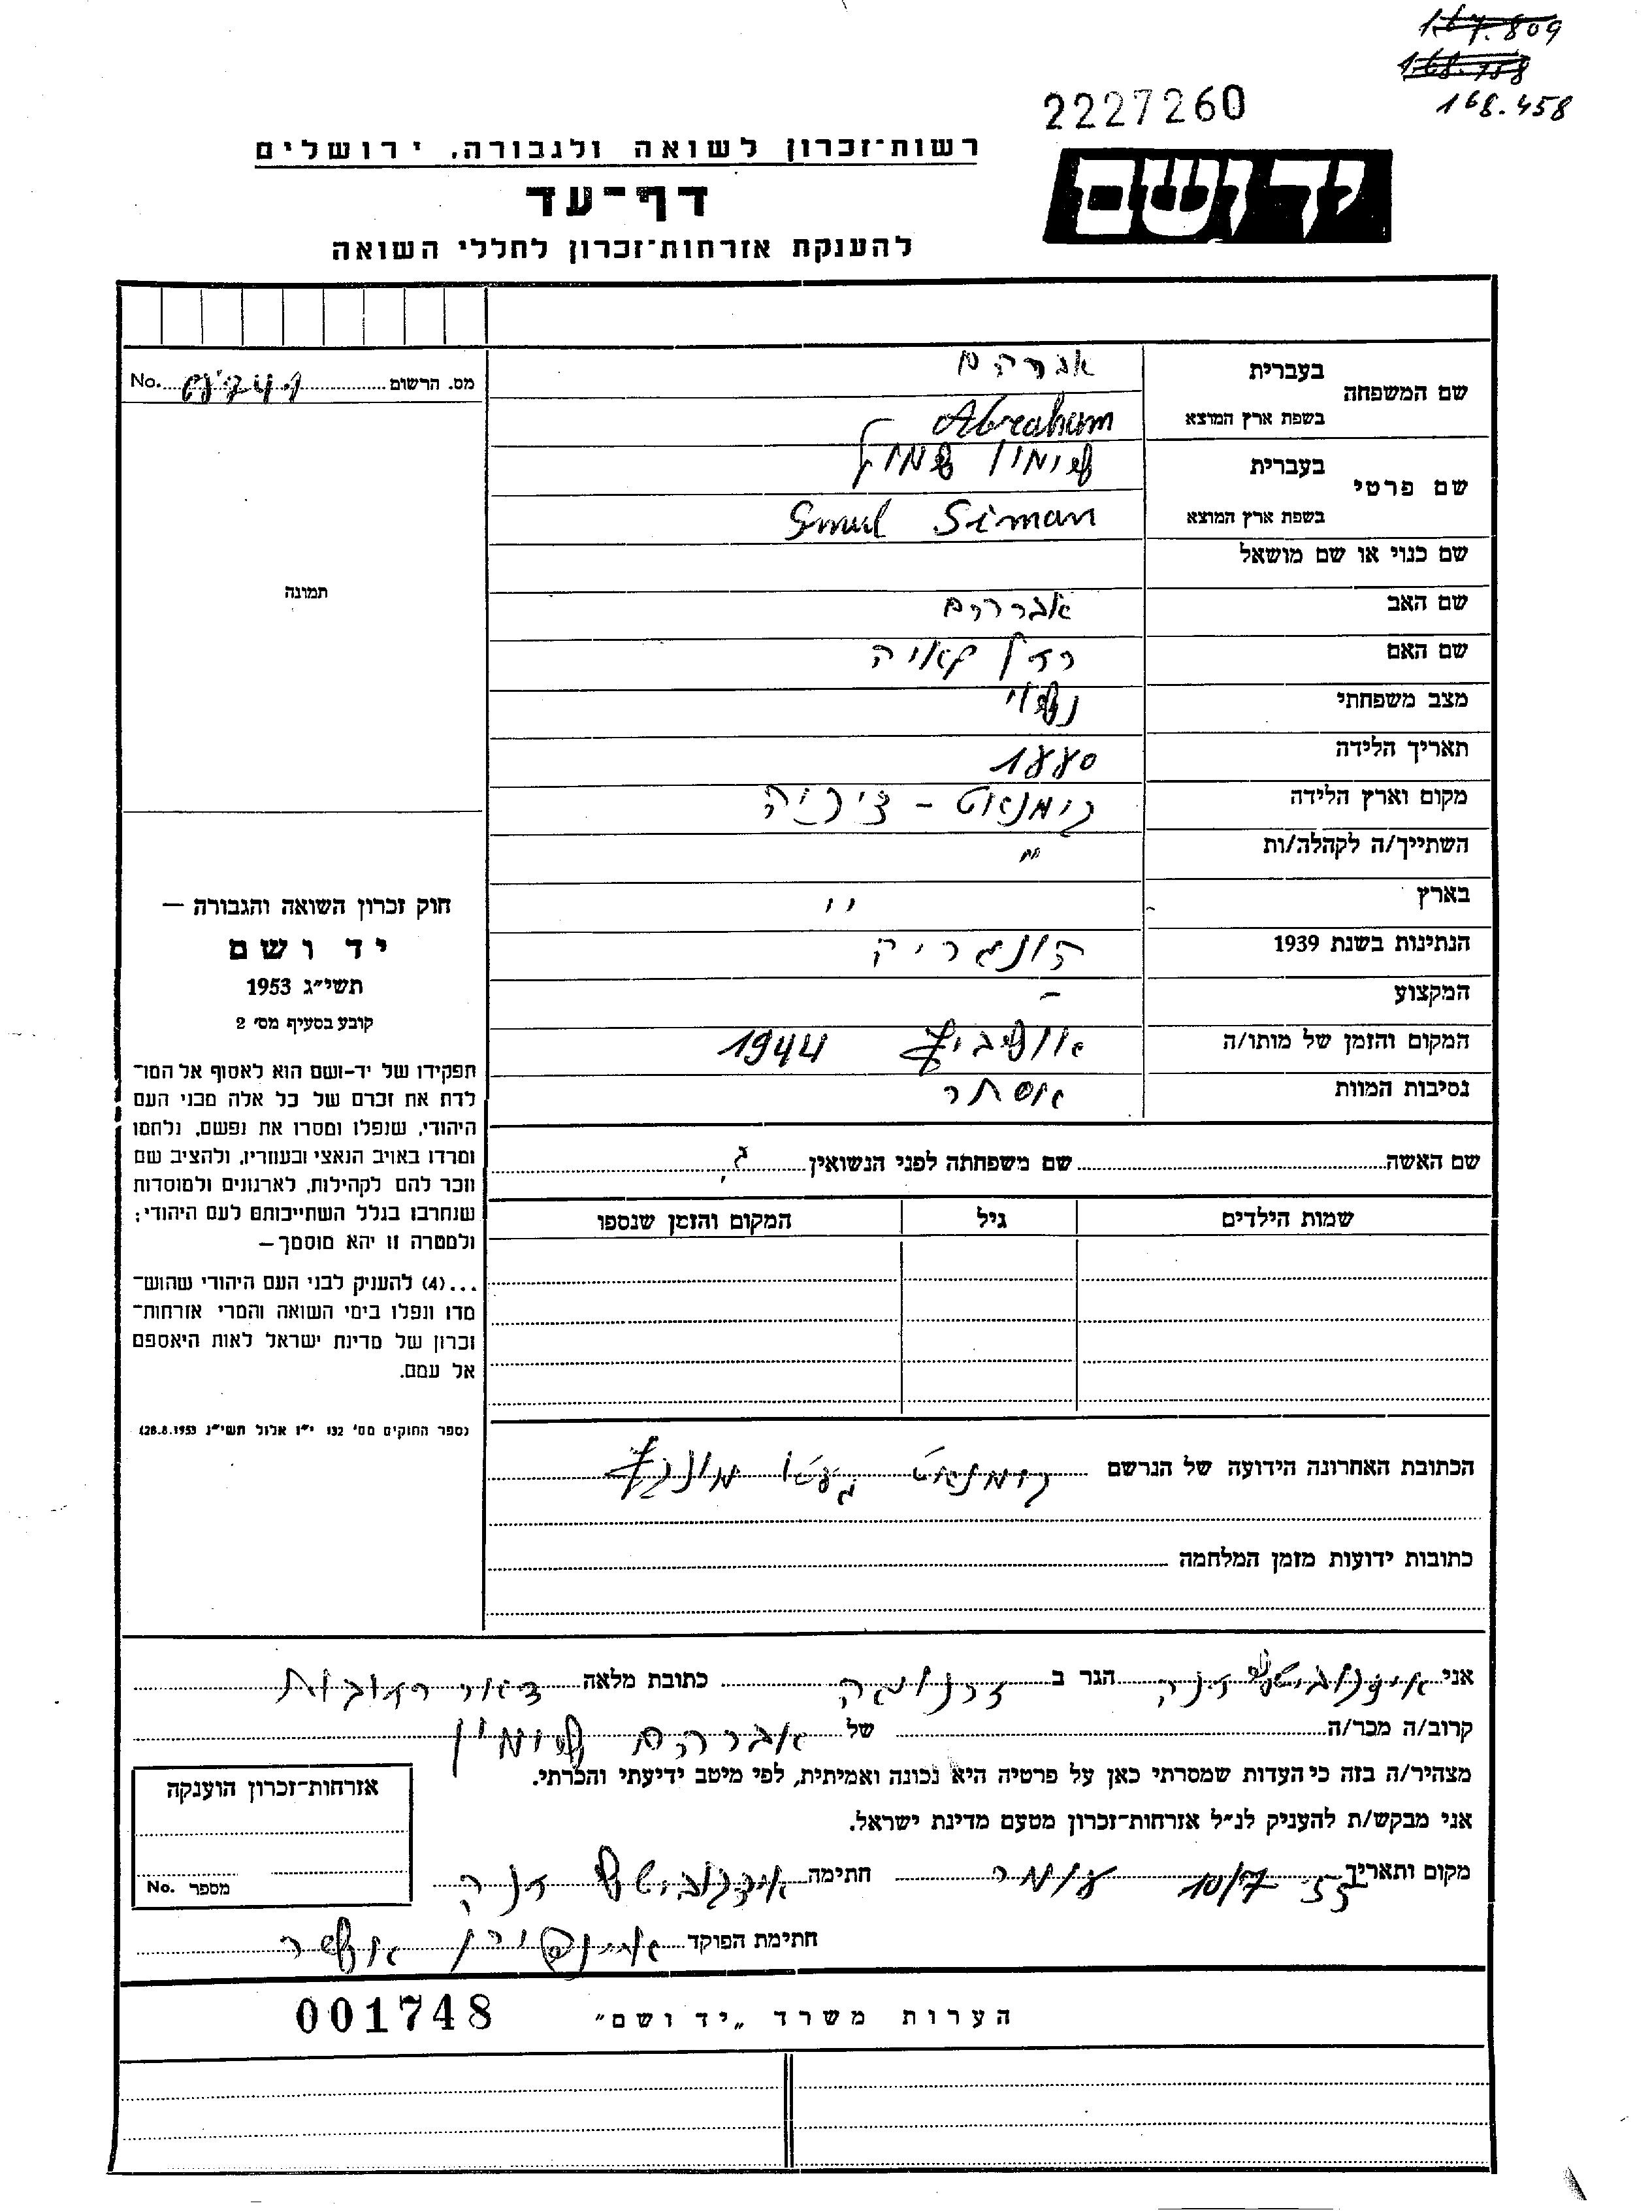 167.809
168.758
168.458
2227260
יד ושם
רשות־זכרון לשואה ולגבורה, ירושלים
דף־עד
להענקת אזרחות־זכרון לחללי השואה
מס. הרשום No.
שם המשפחה
בעברית אברהם
בשפת ארץ המוצא Abraham
שם פרטי
בעברית שימון שמול
בשפת ארץ המוצא Smul Siman
שם כנוי או שם מושאל
שם האב אברהם
שם האם
מצב משפחתי נשוי
תאריך הלידה 1880
מקום וארץ הלידה
השתייך/ה לקהלה/ות "
בארץ "
הנתינות בשנת 1939 הונגריה
המקצוע -
המקום והזמן של מותו/ה אושביץ 1944
נסיבות המוות אסתר
שם האשה שם משפחתה לפני הנשואין
שמות הילדים גיל המקום והזמן שנספו
הכתובת האחרונה הידועה של הנרשם
כתובות ידועות מזמן המלחמה
תמונה
חוק זכרון השואה והגבורה —
יד ושם
תשי״ג 1953
קובע בסעיף מס׳ 2
תפקידו של יד-ושם הוא לאסוף אל המו־
לדת את זכרם של כל אלה מבני העם
היהודי, שנפלו ומסרו את נפשם, נלחמו
ומרדו באויב הנאצי ובעוזריו, ולהציב שם
וזכר להם לקהילות, לארגונים ולמוסדות
שנחרבו בגלל השתייכותם לעם היהודי;
ולמטרה זו יהא מוסמך—
...(4) להעניק לבני העם היהודי שהוש־
מדו ונפלו בימי השואה והמרי אזרחות־
זכרון של מדינת ישראל לאות היאספם
אל עמם.
(ספר החוקים מס׳ 132 י״ז אלול תשי״ג 28.8.1953)
אני הגר ב זרנוגה כתובת מלאה דאר רחובות
קרוב/ה מכר/ה של אברהם שימון
מצהיר/ה בזה כי העדות שמסרתי כאן על פרטיה היא נכונה ואמיתית, לפי מיטב ידיעתי והכרתי.
אני מבקש/ת להעניק לנ״ל אזרחות־זכרון מטעם מדינת ישראל.
מקום ותאריך 10/7 55 חתימה
חתימת הפוקד
אזרחות־זכרון הוענקה
מספר No.
הערות משרד „יד ושם"
001748